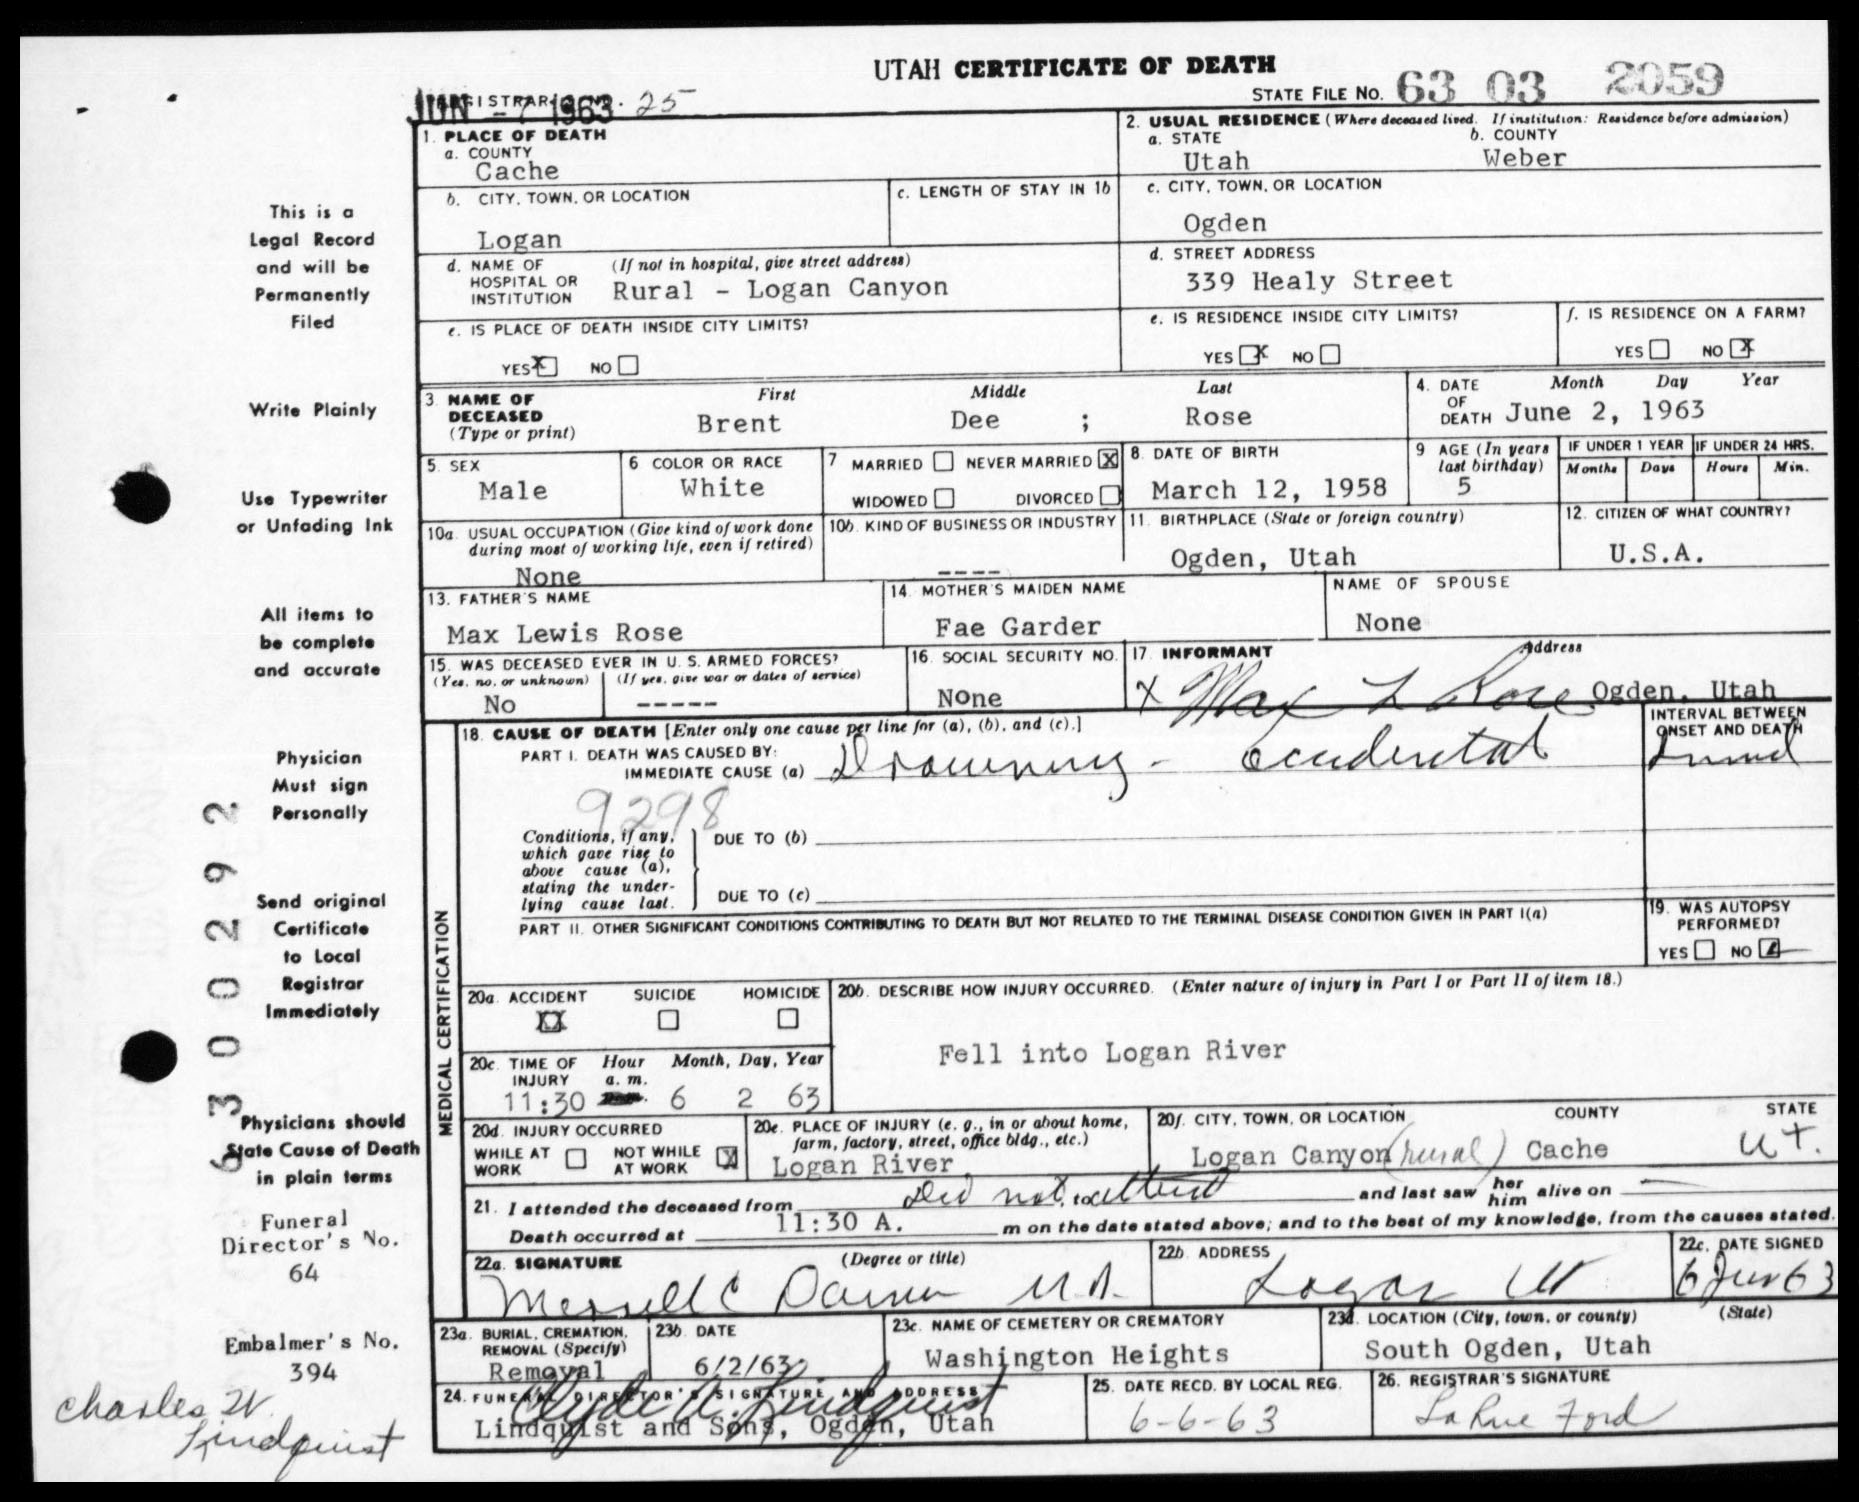 UTAH CERTIFICATE OF DEATH
STATE FILE NO. 63 03 2059
REGISTRAR'S NO. 25
JUN -7 1963
1. PLACE OF DEATH
a. COUNTY
Cache
2. USUAL RESIDENCE (Where deceased lived. If institution: Residence before admission)
a. STATE b. COUNTY
Utah Weber
b. CITY, TOWN, OR LOCATION
Logan
c. LENGTH OF STAY IN 1b
c. CITY, TOWN, OR LOCATION
Ogden
d. NAME OF HOSPITAL OR INSTITUTION (If not in hospital, give street address)
Rural - Logan Canyon
d. STREET ADDRESS
339 Healy Street
e. IS PLACE OF DEATH INSIDE CITY LIMITS?
YES X NO
e. IS RESIDENCE INSIDE CITY LIMITS?
YES X NO
f. IS RESIDENCE ON A FARM?
YES NO X
3. NAME OF DECEASED (Type or print)
First Middle Last
Brent Dee ; Rose
4. DATE OF DEATH
Month Day Year
June 2, 1963
5. SEX
Male
6 COLOR OR RACE
White
7 MARRIED NEVER MARRIED X
WIDOWED DIVORCED
8. DATE OF BIRTH
March 12, 1958
9 AGE (In years last birthday)
5
IF UNDER 1 YEAR
Months Days
IF UNDER 24 HRS.
Hours Min.
10a. USUAL OCCUPATION (Give kind of work done during most of working life, even if retired)
None
10b. KIND OF BUSINESS OR INDUSTRY
----
11. BIRTHPLACE (State or foreign country)
Ogden, Utah
12. CITIZEN OF WHAT COUNTRY?
U.S.A.
13. FATHER'S NAME
Max Lewis Rose
14. MOTHER'S MAIDEN NAME
Fae Garder
NAME OF SPOUSE
None
15. WAS DECEASED EVER IN U. S. ARMED FORCES?
(Yes, no, or unknown) (If yes, give war or dates of service)
No -----
16. SOCIAL SECURITY NO.
None
17. INFORMANT Address
X Max L Rose Ogden, Utah
MEDICAL CERTIFICATION
18. CAUSE OF DEATH [Enter only one cause per line for (a), (b), and (c).]
PART I. DEATH WAS CAUSED BY:
IMMEDIATE CAUSE (a) Drowning - accidental
INTERVAL BETWEEN ONSET AND DEATH
9298
Conditions, if any, which gave rise to above cause (a), stating the underlying cause last.
DUE TO (b)
DUE TO (c)
PART II. OTHER SIGNIFICANT CONDITIONS CONTRIBUTING TO DEATH BUT NOT RELATED TO THE TERMINAL DISEASE CONDITION GIVEN IN PART I(a)
19. WAS AUTOPSY PERFORMED?
YES NO
20a. ACCIDENT SUICIDE HOMICIDE
XX
20b. DESCRIBE HOW INJURY OCCURRED. (Enter nature of injury in Part I or Part II of item 18.)
Fell into Logan River
20c. TIME OF INJURY Hour Month, Day, Year
a. m.
11:30 6 2 63
20d. INJURY OCCURRED
WHILE AT WORK NOT WHILE AT WORK X
20e. PLACE OF INJURY (e. g., in or about home, farm, factory, street, office bldg., etc.)
Logan River
20f. CITY, TOWN, OR LOCATION COUNTY STATE
Logan Canyon (rural) Cache UT.
21. I attended the deceased from Did not attend to and last saw her him alive on
Death occurred at 11:30 A. m on the date stated above; and to the best of my knowledge, from the causes stated.
22a. SIGNATURE (Degree or title)
Merrill C Daines M.D.
22b. ADDRESS
Logan Ut
22c. DATE SIGNED
6 Jun 63
23a. BURIAL, CREMATION, REMOVAL (Specify)
Removal
23b. DATE
6/2/63
23c. NAME OF CEMETERY OR CREMATORY
Washington Heights
23d. LOCATION (City, town, or county) (State)
South Ogden, Utah
24. FUNERAL DIRECTOR'S SIGNATURE AND ADDRESS
Clyde A. Lindquist
Lindquist and Sons, Ogden, Utah
25. DATE RECD. BY LOCAL REG.
6-6-63
26. REGISTRAR'S SIGNATURE
LaRue Ford
This is a
Legal Record
and will be
Permanently
Filed
Write Plainly
Use Typewriter
or Unfading Ink
All items to
be complete
and accurate
Physician
Must sign
Personally
Send original
Certificate
to Local
Registrar
Immediately
Physicians should
State Cause of Death
in plain terms
Funeral
Director's No.
64
Embalmer's No.
394
Charles W.
Lindquist
6 3 0 0 2 9 2